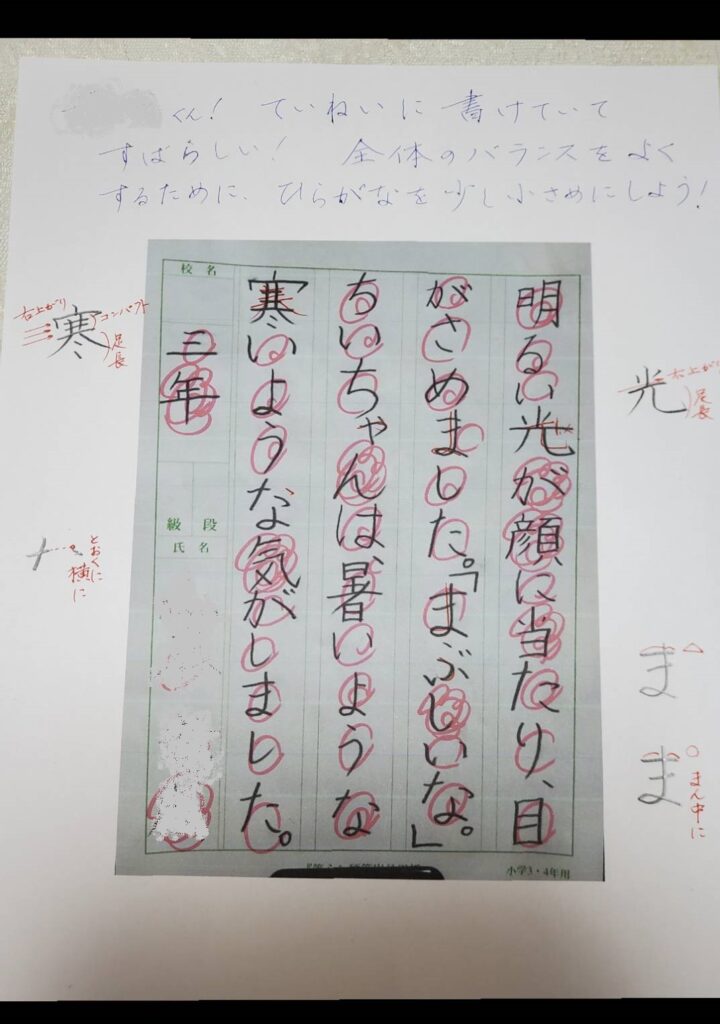 くん! ていねいに書けていて
すばらしい! 全体のバランスをよく
するために、ひらがなを少し小さめにしよう!
明るい光が顔に当たり、目
がさめました。「まぶしいな。」
ちいちゃんは、暑いような
寒いような気がしました。
校名
三年
級 段
氏名
小学3・4年用
光
右上がり
足長
ま
ま
まん中に
右上がり
寒
コンパクト
足長
とおくに
横に